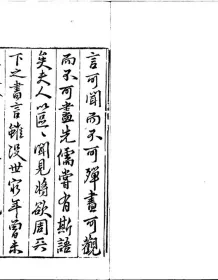 言可聞而不可殫書可觀
而不可盡先儒嘗有斯語
矣夫人以區〻聞見將欲周天
下之書言雖沒世窮年曾未